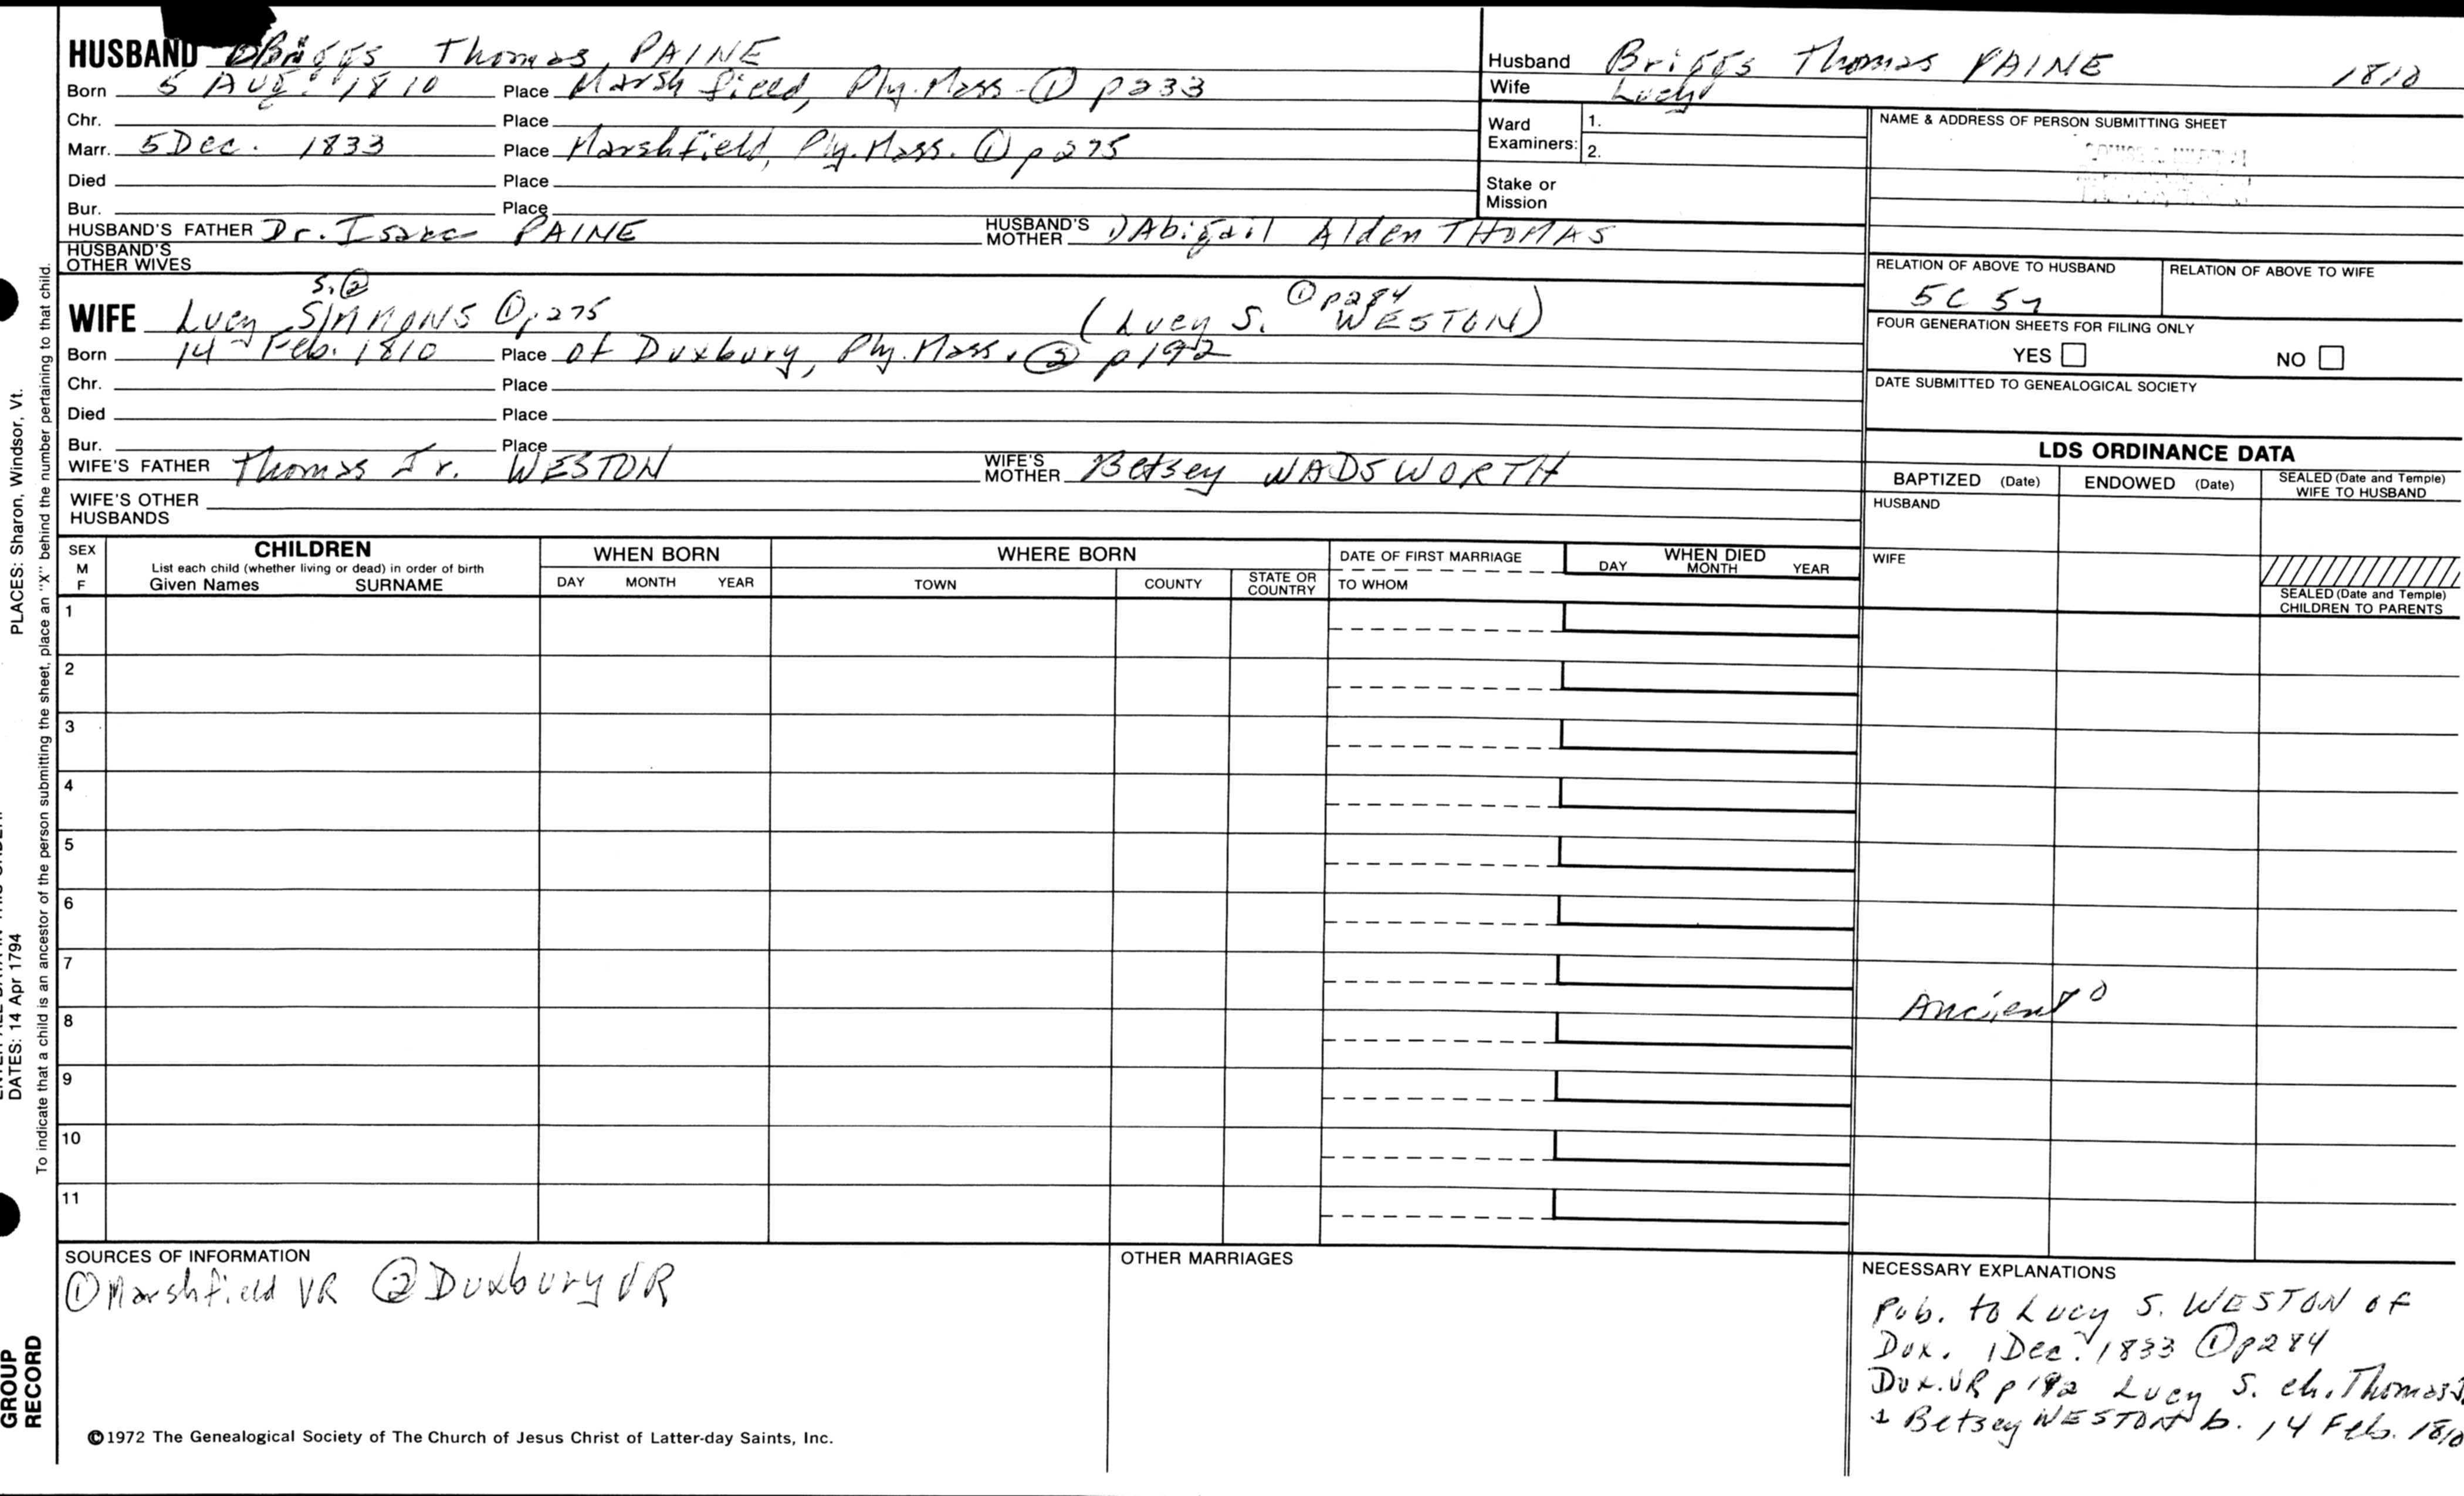 HUSBAND Briggs Thomas PAINE
Born 5 Aug. 1810 Place Marshfield, Ply. Mass. ① p233
Chr. Place
Marr. 5 Dec. 1833 Place Marshfield, Ply. Mass. ① p275
Died Place
Bur. Place
HUSBAND'S FATHER Dr. Isaac PAINE HUSBAND'S MOTHER Abigail Alden THOMAS
HUSBAND'S OTHER WIVES
S. ②
WIFE Lucy SIMMONS ① p275 (Lucy S. WESTON) ① p284
Born 14 Feb. 1810 Place of Duxbury, Ply. Mass. ② p192
Chr. Place
Died Place
Bur. Place
WIFE'S FATHER Thomas Jr. WESTON WIFE'S MOTHER Betsey WADSWORTH
WIFE'S OTHER HUSBANDS
Husband Briggs Thomas PAINE 1810
Wife Lucy
Ward Examiners: 1.
2.
Stake or Mission
NAME & ADDRESS OF PERSON SUBMITTING SHEET
RELATION OF ABOVE TO HUSBAND RELATION OF ABOVE TO WIFE
5C
FOUR GENERATION SHEETS FOR FILING ONLY
YES NO
DATE SUBMITTED TO GENEALOGICAL SOCIETY
LDS ORDINANCE DATA
BAPTIZED (Date) ENDOWED (Date) SEALED (Date and Temple) WIFE TO HUSBAND
HUSBAND
WIFE
SEALED (Date and Temple) CHILDREN TO PARENTS
SEX M F
CHILDREN
List each child (whether living or dead) in order of birth
Given Names SURNAME
WHEN BORN
DAY MONTH YEAR
WHERE BORN
TOWN COUNTY STATE OR COUNTRY
DATE OF FIRST MARRIAGE
TO WHOM
WHEN DIED
DAY MONTH YEAR
1
2
3
4
5
6
7
8
9
10
11
Ancient
SOURCES OF INFORMATION
① Marshfield VR ② Duxbury VR
OTHER MARRIAGES
NECESSARY EXPLANATIONS
Pub. to Lucy S. WESTON of
Dux. 1 Dec. 1833 ① p284
Dux. VR p192 Lucy S. ch. Thomas
& Betsey WESTON b. 14 Feb. 1810
©1972 The Genealogical Society of The Church of Jesus Christ of Latter-day Saints, Inc.
PLACES: Sharon, Windsor, Vt.
DATES: 14 Apr 1794
To indicate that a child is an ancestor of the person submitting the sheet, place an "X" behind the number pertaining to that child.
GROUP
RECORD